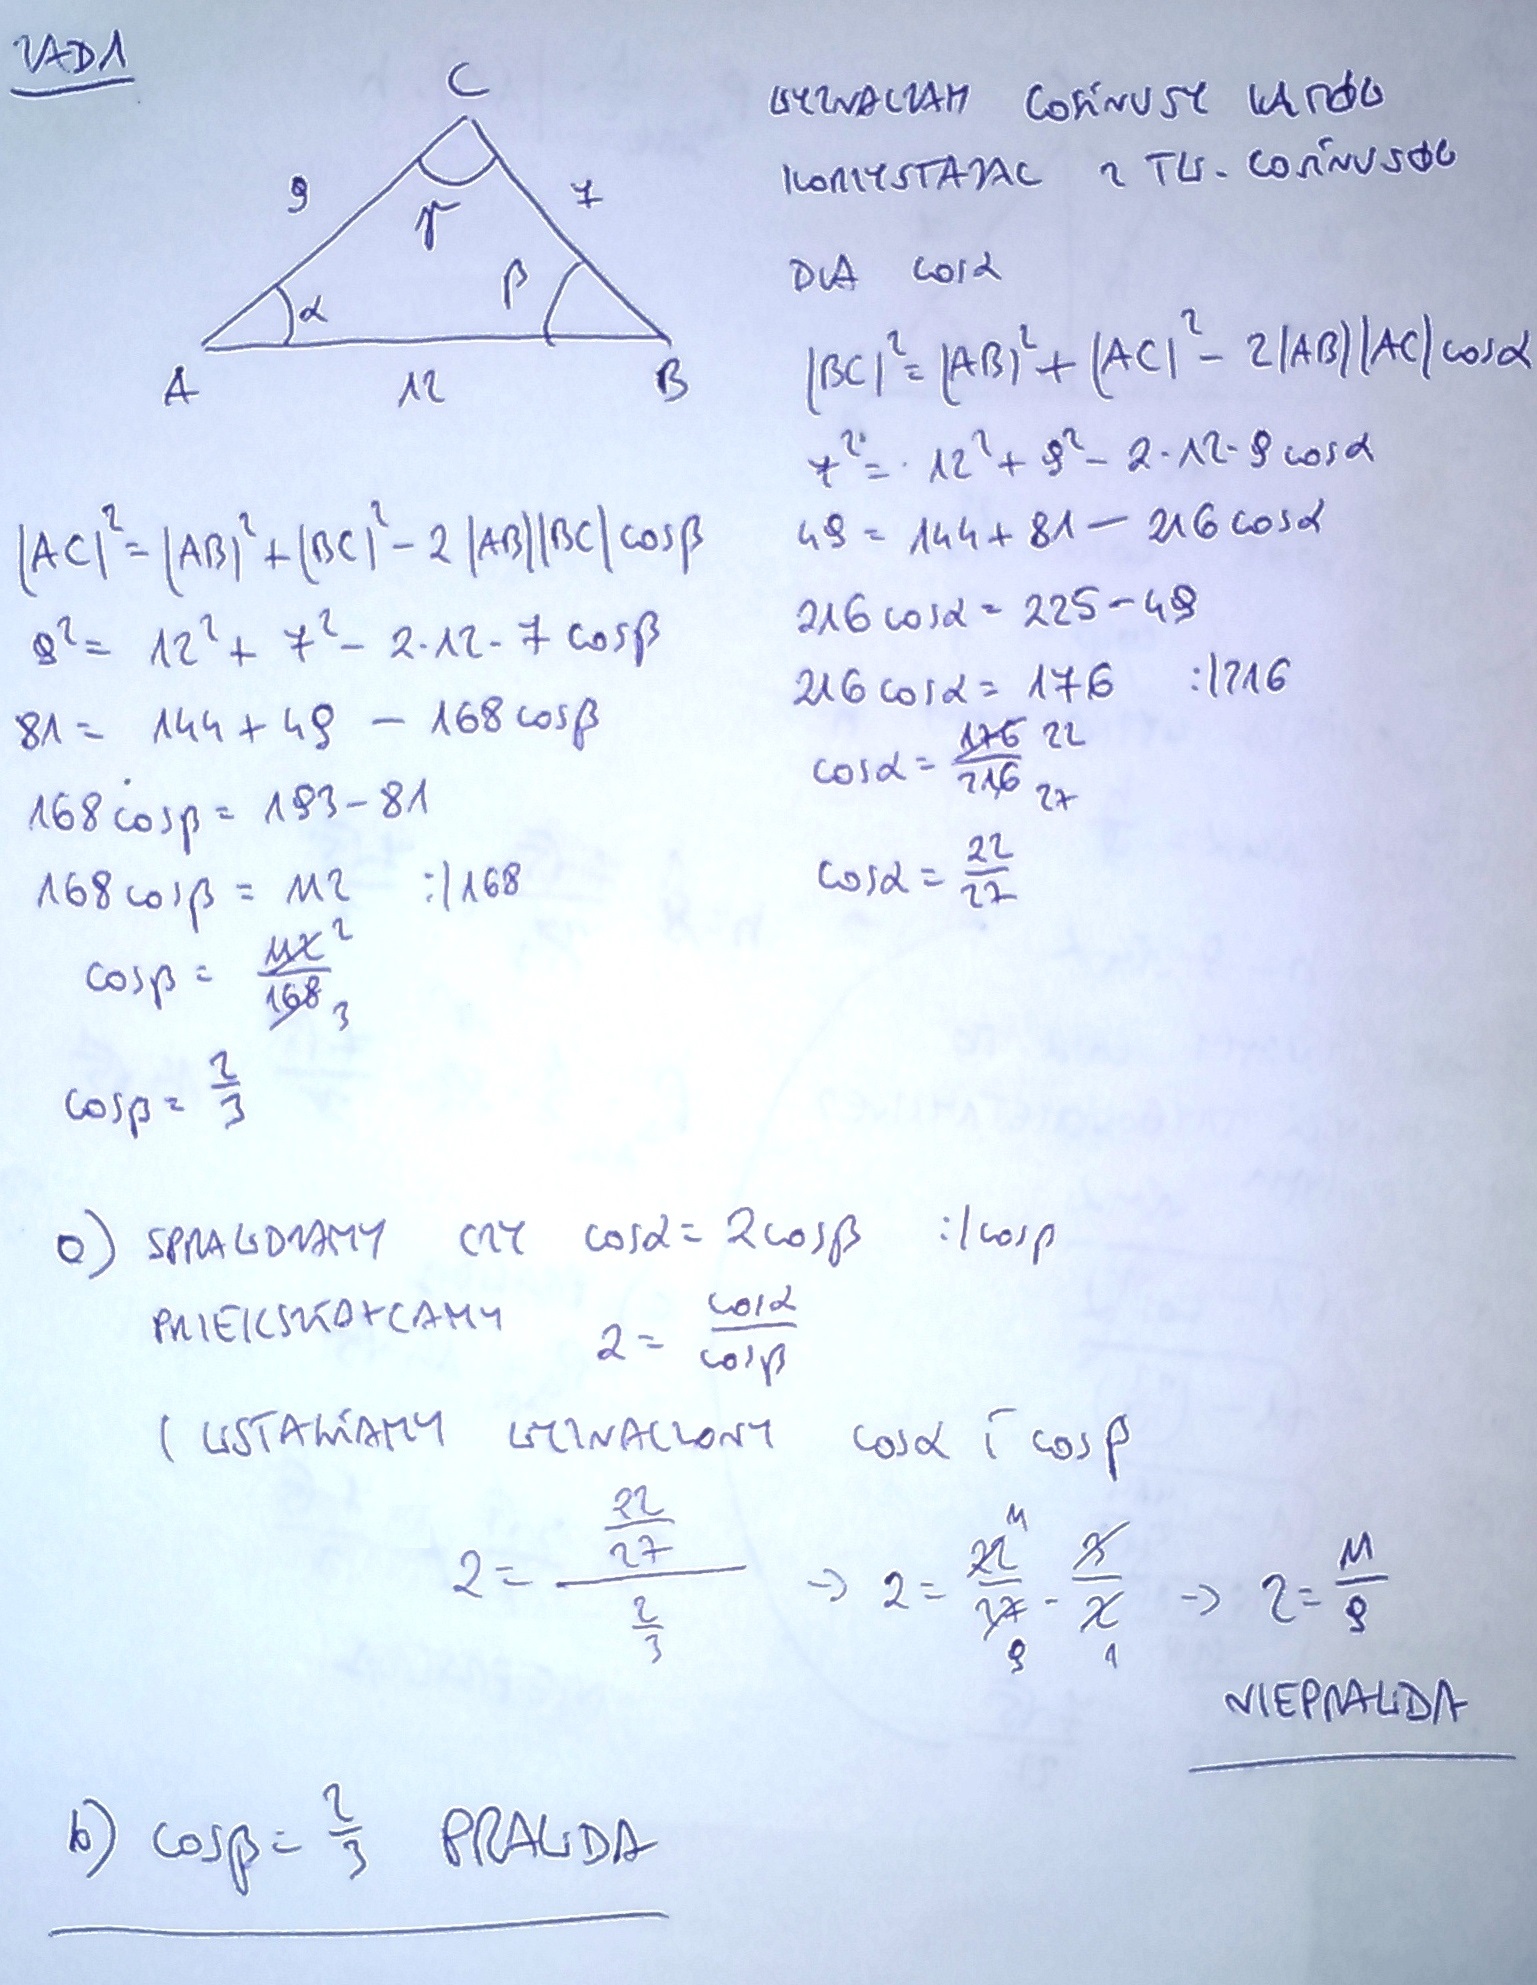 ZAD1
C
9
7
γ
α
β
A
12
B
WYZNACZAM COSINUSY KĄTÓW
KORZYSTAJĄC Z TW. COSINUSÓW
DLA cosα
|BC|² = |AB|² + |AC|² - 2|AB||AC|cosα
7² = 12² + 9² - 2·12·9 cosα
49 = 144 + 81 - 216 cosα
216 cosα = 225 - 49
216 cosα = 176 :/216
cosα = 176/216 22 27
cosα = 22/27
|AC|² = |AB|² + |BC|² - 2|AB||BC|cosβ
9² = 12² + 7² - 2·12·7 cosβ
81 = 144 + 49 - 168 cosβ
168 cosβ = 193 - 81
168 cosβ = 112 :/168
cosβ = 112/168 2 3
cosβ = 2/3
a) SPRAWDZAMY CZY cosα = 2cosβ :/cosβ
PRZEKSZTAŁCAMY 2 = cosα/cosβ
( WSTAWIAMY WYZNACZONY cosα i cosβ
2 = (22/27)/(2/3) → 2 = 22/27 · 3/2 11 9 1 → 2 = 11/9
NIEPRAWDA
b) cosβ = 2/3 PRAWDA